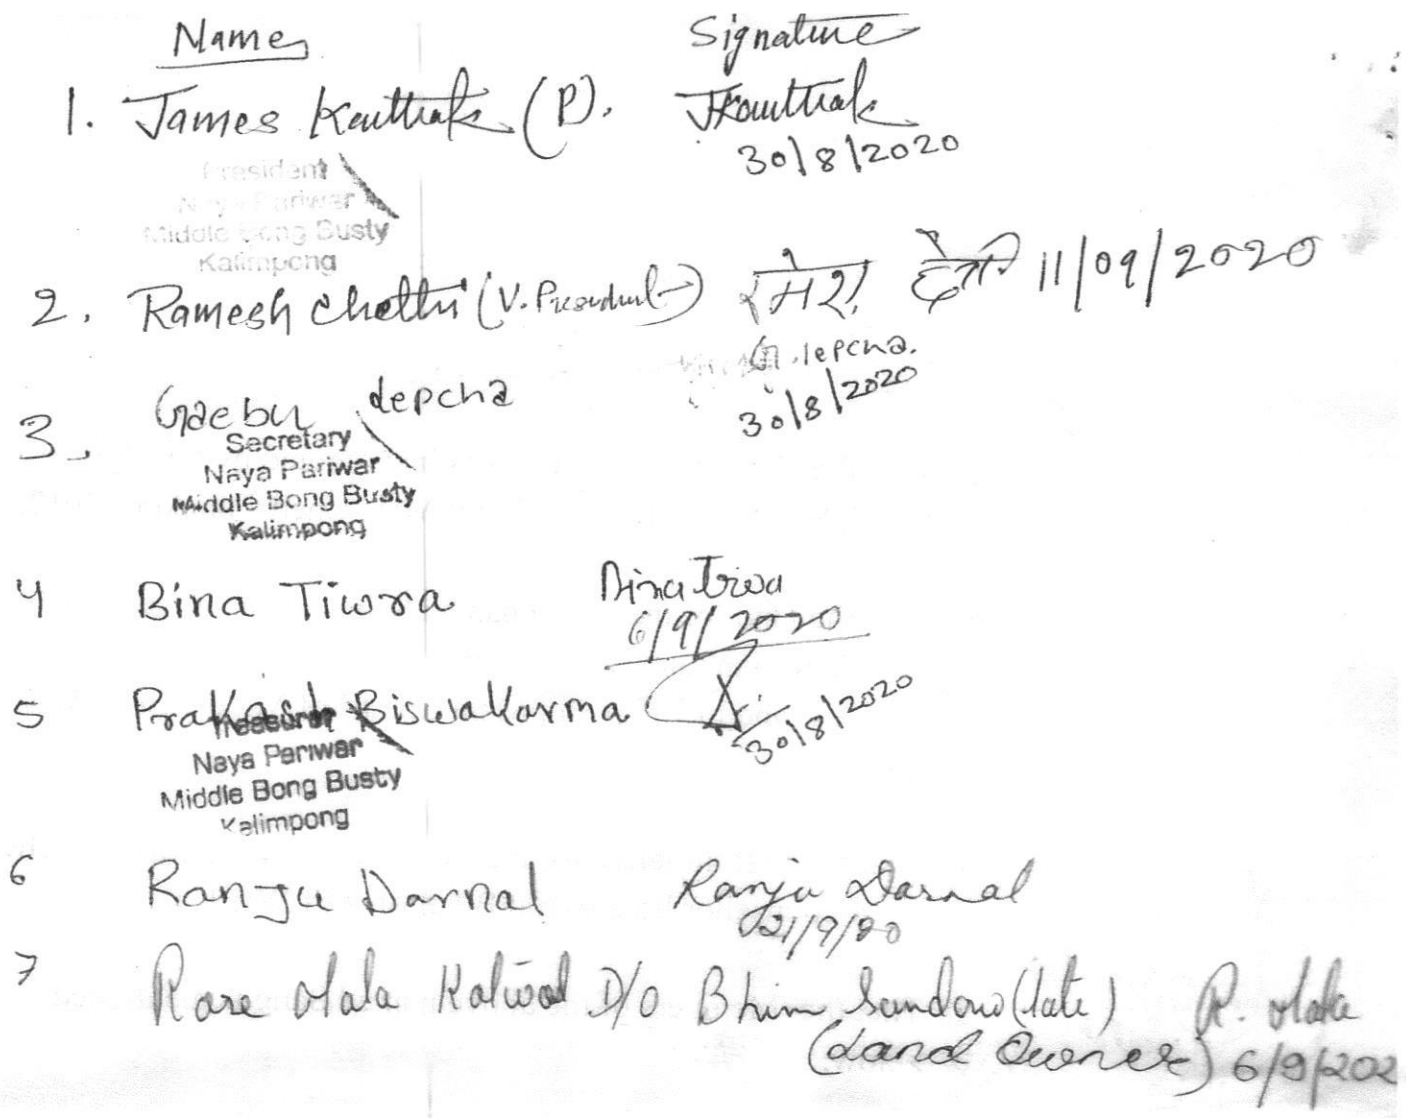 Name Signature
1. James Kauttiak (P). JKauttiak
30/8/2020
President
Naya Pariwar
Middle Bong Busty
Kalimpong
2. Ramesh Chettri (V. President) 11/09/2020
G. lepcha.
30/8/2020
3. Gaebu lepcha
Secretary
Naya Pariwar
Middle Bong Busty
Kalimpong
4 Bina Tiwra Bina Tiwa
6/9/2020
5 Prakash Biswakarma 30/8/2020
Treasurer
Naya Pariwar
Middle Bong Busty
Kalimpong
6 Ranju Darnal Ranju Darnal
21/9/20
7 Rose Mala Katwal D/O Bhim Sundow (late) R. Mala
(Land Owner) 6/9/202